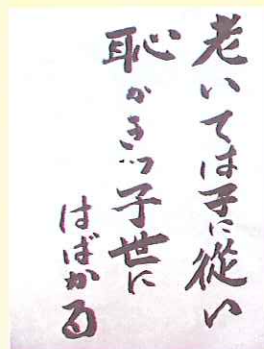 老いては子に従い
恥かきッ子世に
はばかる